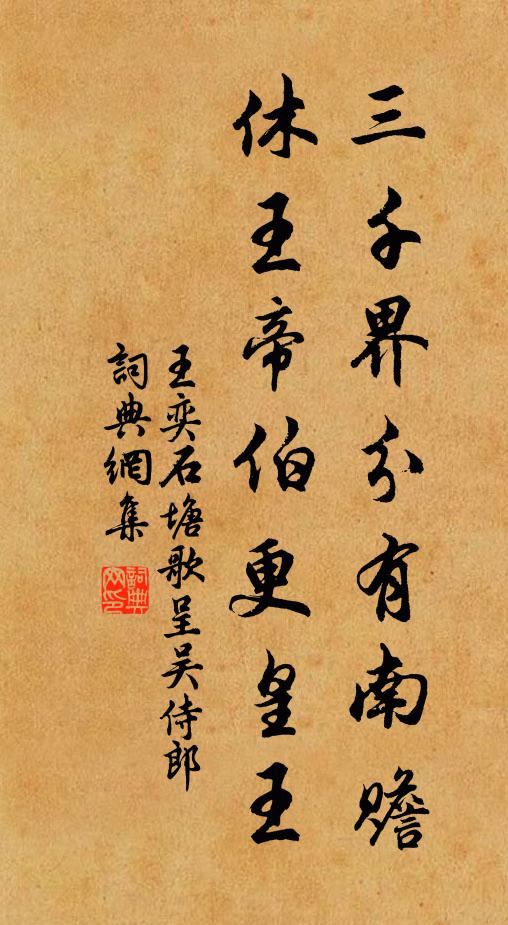 三千界分有南贍
休王帝伯更皇王
王奕石塘歌呈吴侍郎
詞典網集
詞典網印